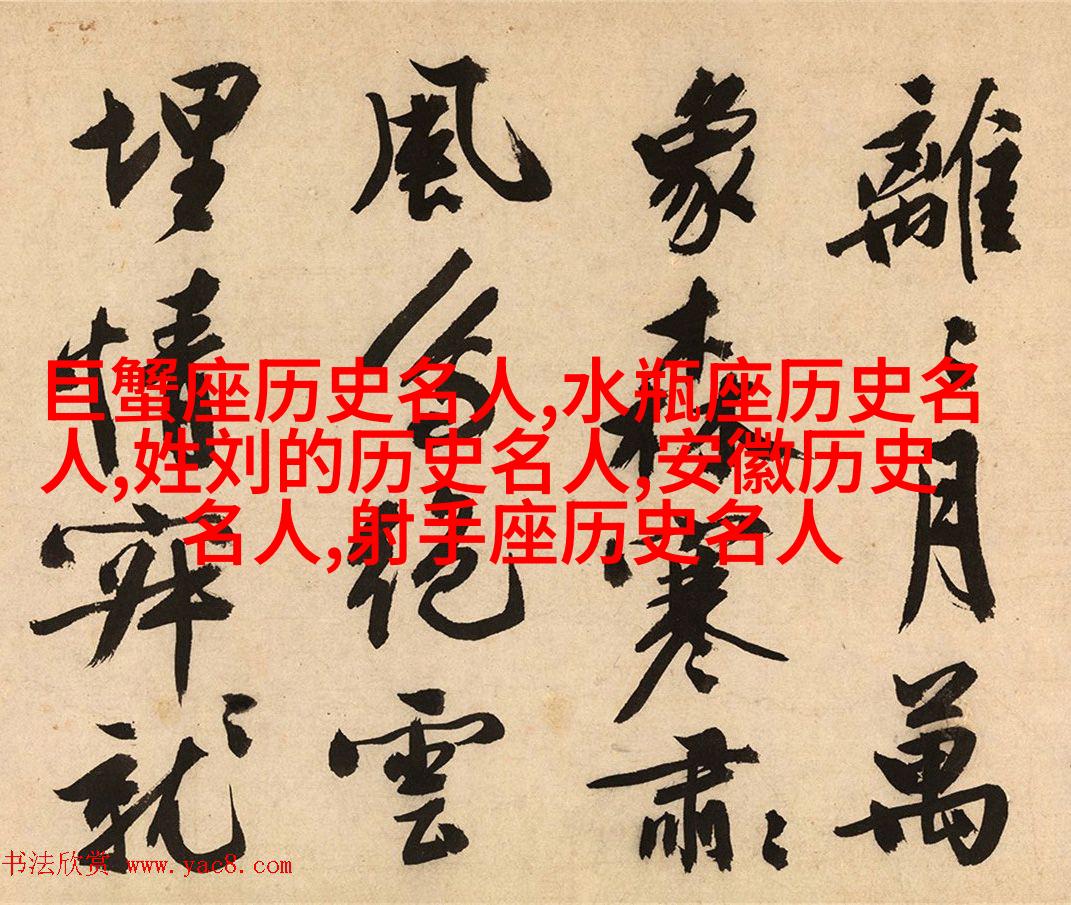 離〻月萬
象森寒肅〻
風絕雲
埋情穽
巨蟹座历史名人,水瓶座历史名
人,姓刘的历史名人,安徽历史
名人,射手座历史名人
书法欣赏 www.yac8.com